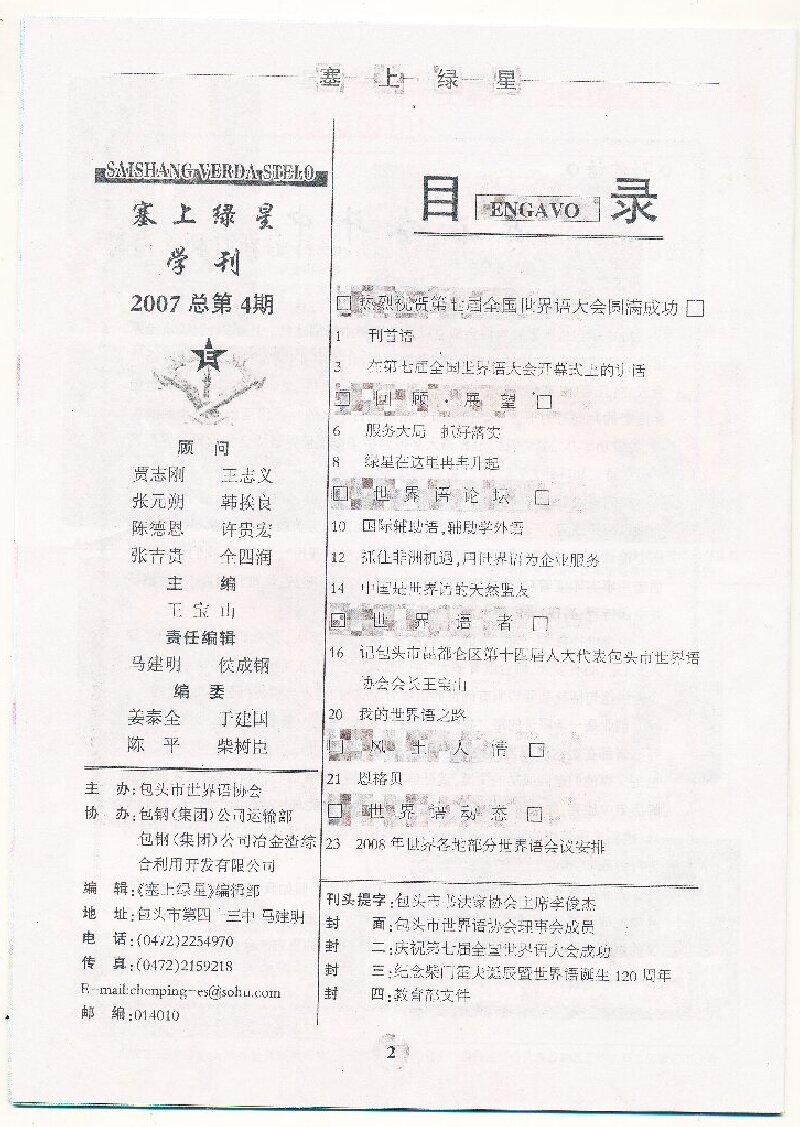 塞上绿星
SAISHANG VERDA STELO
塞上绿星
学刊
2007 总第 4期
E
顾 问
贾志刚 王志义
张元朔 韩挨良
陈德恩 许贵宏
张吉贵 全四润
主 编
王宝山
责任编辑
马建明 侯成钢
编 委
姜泰全 于建国
陈 平 柴树臣
主 办:包头市世界语协会
协 办:包钢(集团)公司运输部
包钢(集团)公司冶金渣综
合利用开发有限公司
编 辑:《塞上绿星》编辑部
地 址:包头市第四十三中 马建明
电 话:(0472)2254970
传 真:(0472)2159218
E-mail:chenping-es@sohu.com
邮 编:014010
目 ENGAVO 录
□ 热烈祝贺第七届全国世界语大会圆满成功 □
1 刊首语
3 在第七届全国世界语大会开幕式上的讲话
□ 回 顾 · 展 望 □
6 服务大局 抓好落实
8 绿星在这里冉冉升起
□ 世 界 语 论 坛 □
10 国际辅助语,辅助学外语
12 抓住非洲机遇,用世界语为企业服务
14 中国是世界语的天然盟友
□ 世 界 语 者 □
16 记包头市昆都仑区第十四届人大代表包头市世界语
协会会长王宝山
20 我的世界语之路
□ 风 土 人 情 □
21 恩格贝
□ 世 界 语 动 态 □
23 2008 年世界各地部分世界语会议安排
刊头提字:包头市书法家协会主席李俊杰
封 面:包头市世界语协会理事会成员
封 二:庆祝第七届全国世界语大会成功
封 三:纪念柴门霍夫诞辰暨世界语诞生 120 周年
封 四:教育部文件
2